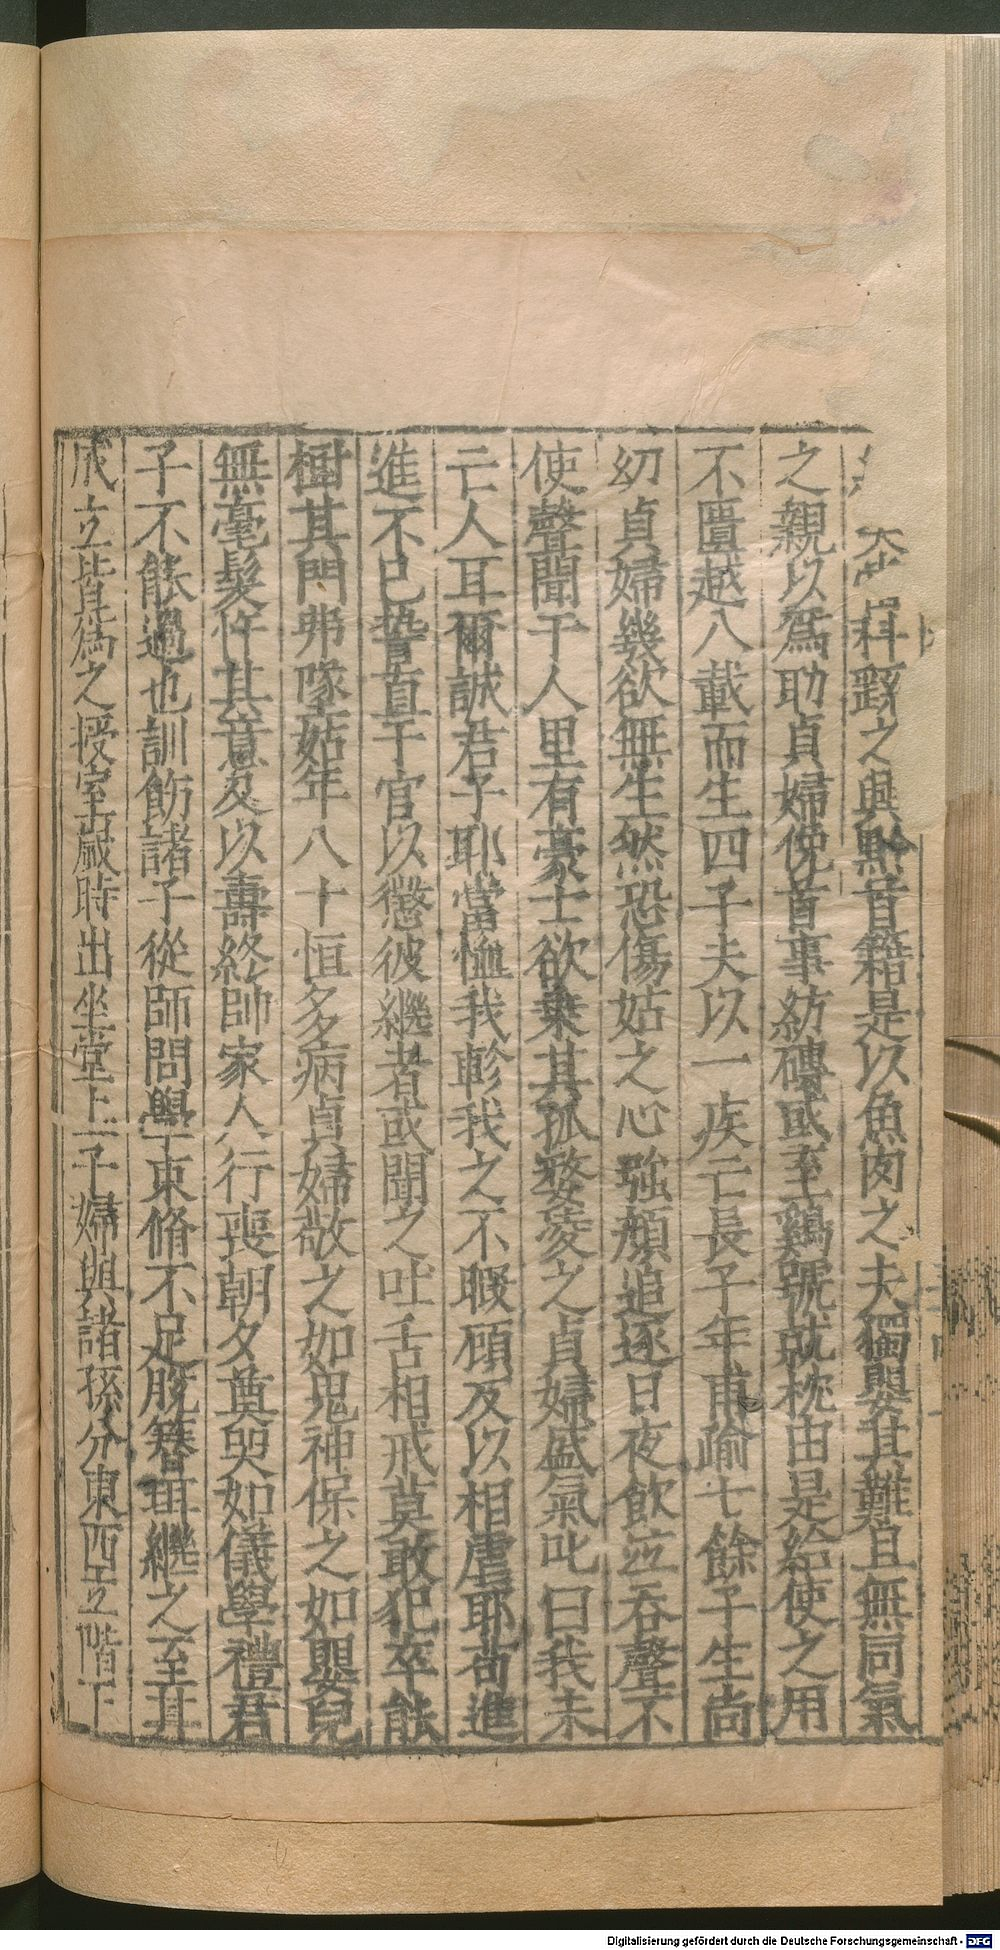 科繇之與黔首籍是以魚肉之夫獨嬰其難且無同氣
之親以爲助貞婦俛首事紡磚或至鷄號就枕由是給使之用
不匱越八載而生四子夫以一疾亡長子年甫踰七餘子生尚
幼貞婦幾欲無生然恐傷姑之心強顏追逐日夜飲泣吞聲不
使聲聞于人里有豪士欲乗其孤嫠凌之貞婦盛氣叱曰我未
亡人耳爾誠君子耶當恤我軫我之不暇顧反以相虐耶苟進
進不已誓直于官以懲彼繼者或聞之吐舌相戒莫敢犯卒能
樹其門弗墜姑年八十恒多病貞婦敬之如鬼神保之如嬰兒
無毫髮忤其意及以壽終帥家人行喪朝夕奠哭如儀學禮君
子不能過也訓飭諸子從師問學束脩不足脫簪珥繼之至其
成立皆為之授室嵗時出坐堂上子婦與諸孫分東西立階下
Digitalisierung gefördert durch die Deutsche Forschungsgemeinschaft - DFG